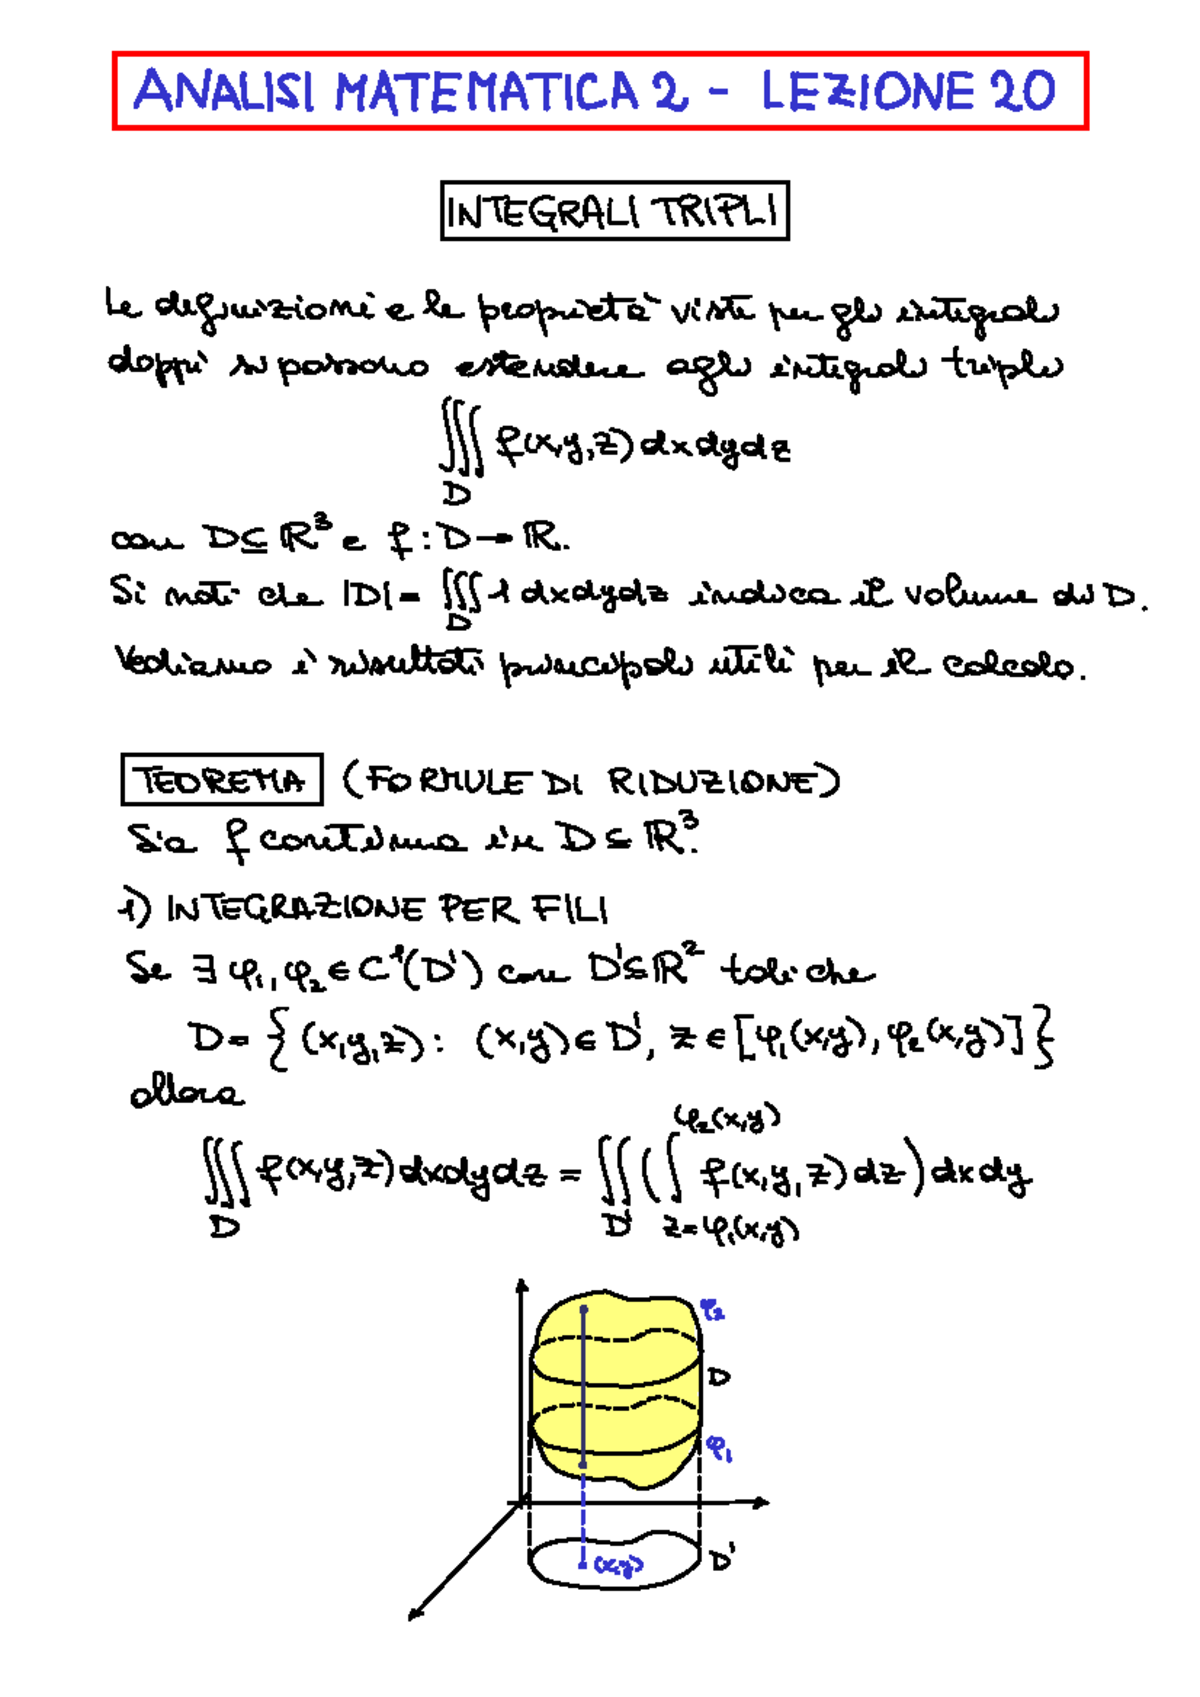 ANALISI MATEMATICA 2 - LEZIONE 20
INTEGRALI TRIPLI
Le definizioni e le proprietà viste per gli integrali
doppi si possono estendere agli integrali tripli
∭_D f(x,y,z) dxdydz
con D ⊆ ℝ³ e f : D → ℝ.
Si noti che |D| = ∭_D 1 dxdydz indica il volume di D.
Vediamo i risultati principali utili per il calcolo.
TEOREMA (FORMULE DI RIDUZIONE)
Sia f continua in D ⊆ ℝ³.
1) INTEGRAZIONE PER FILI
Se ∃ φ₁, φ₂ ∈ C¹(D') con D' ⊆ ℝ² tali che
D = { (x,y,z) : (x,y) ∈ D', z ∈ [φ₁(x,y), φ₂(x,y)] }
allora
∭_D f(x,y,z) dxdydz = ∬_D' ( ∫_{z=φ₁(x,y)}^{φ₂(x,y)} f(x,y,z) dz ) dxdy
φ₂
D
φ₁
(x,y)
D'